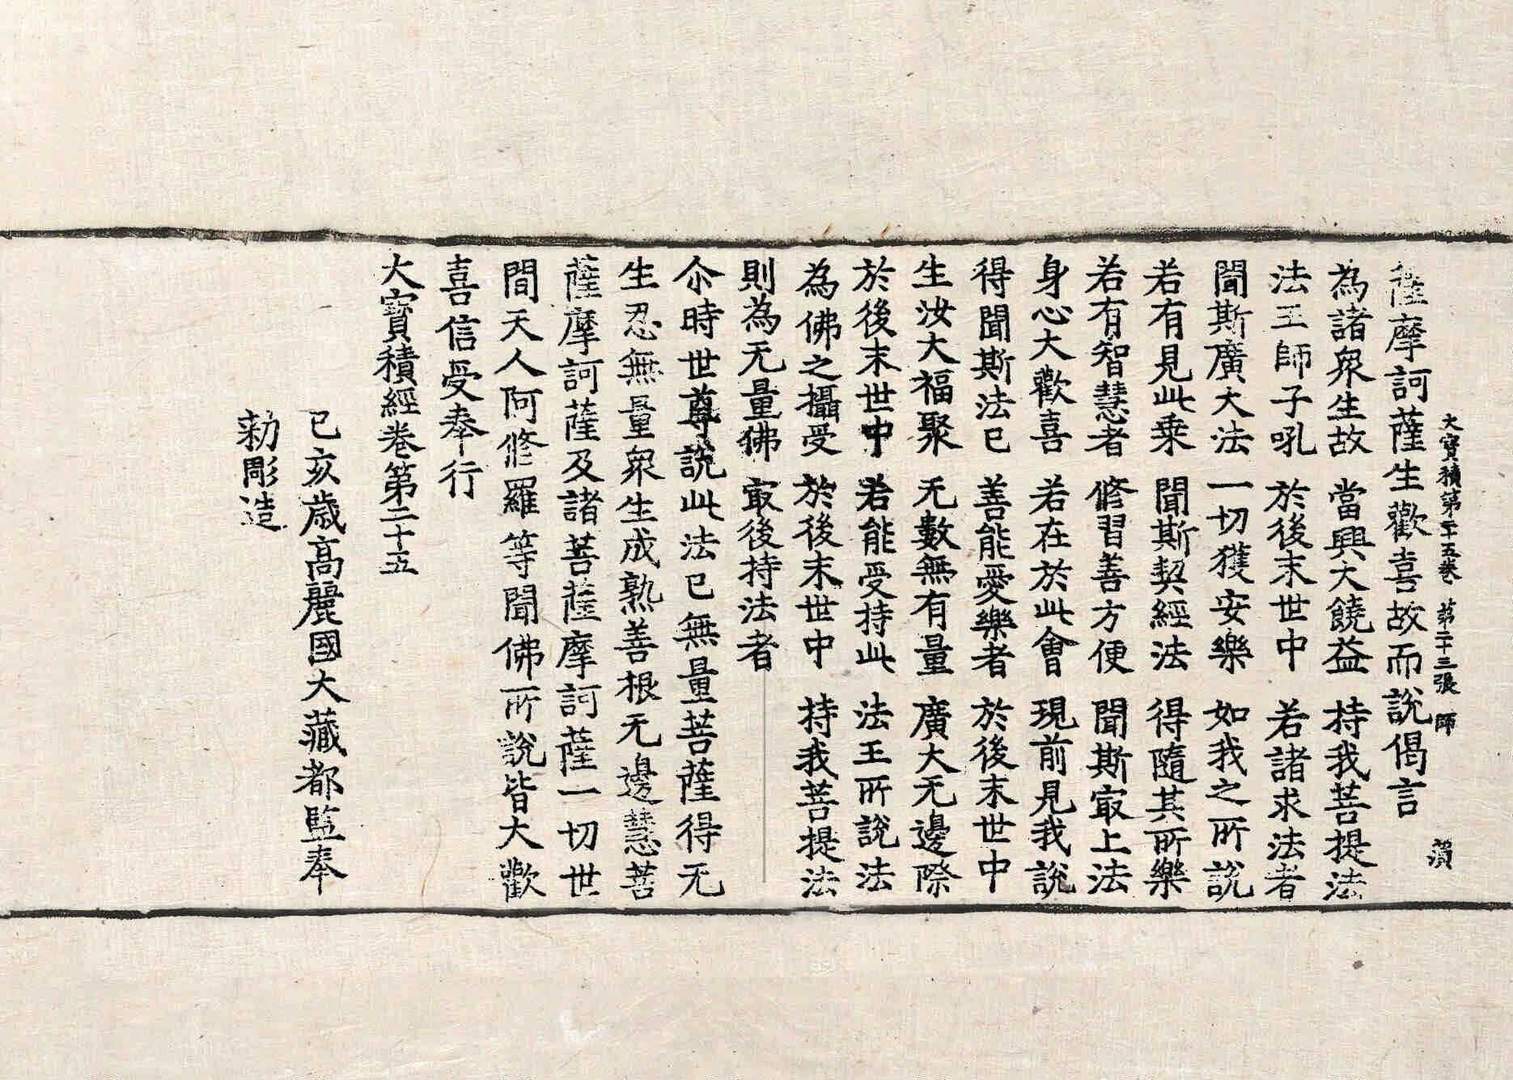 大寶積第二十五卷 第二十三張 師
薩摩訶薩生歡喜故而說偈言
為諸衆生故 當興大饒益 持我菩提法
法王師子吼 於後末世中 若諸求法者
聞斯廣大法 一切獲安樂 如我之所說
若有見此乗 聞斯契經法 得隨其所樂
若有智慧者 修習善方便 聞斯㝡上法
身心大歡喜 若在於此會 現前見我說
得聞斯法已 善能愛樂者 於後末世中
生汝大福聚 无數無有量 廣大无邊際
於後末世中 若能受持此 法王所說法
為佛之攝受 於後末世中 持我菩提法
則為无量佛 㝡後持法者
尒時世尊說此法已無量菩薩得无
生忍無量衆生成熟善根无邊慧菩
薩摩訶薩及諸菩薩摩訶薩一切世
間天人阿修羅等聞佛所說皆大歡
喜信受奉行
大寶積經卷第二十五
己亥歳高麗國大藏都監奉
勑彫造